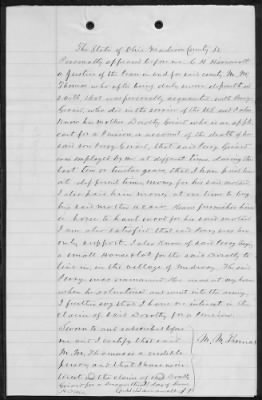 The State of Ohio Madison County ss
Personally appeared before me C. H.
a Justice of the Peace in and for said county M. M.
Thomas who after being duly sworn deposeth and
saith that was personally acquainted with Perry
who died in the service of the US and I also
know his mother Dorothy who is an appli
cant for a Pension on account of the death of her
said son Perry that said Perry
was employed by me at different times during the
last ten or twelve years, that I have paid him
at different times, money for his said mother
I also paid him money, at one time to buy
his said mother a cow. Have furnished him
a horse to haul wood for his said mother
I am also satisfied that said Perry was her
only support. I also know of said Perry buying
a small House & lot for the said Dorothy to
live in, in the village of Midway. The said
Perry was unmarried. He was at my house
when he volunteered and went into the army,
I further say that I have no interest in the
claim of said Dorothy for a Pension.
Sworn to and subscribed before
me and I certify that said
M. M. Thomas
M. M. Thomas is a credible
person and that I have no in
terest in the claim of said Dorothy
for a Pension day of June
J P